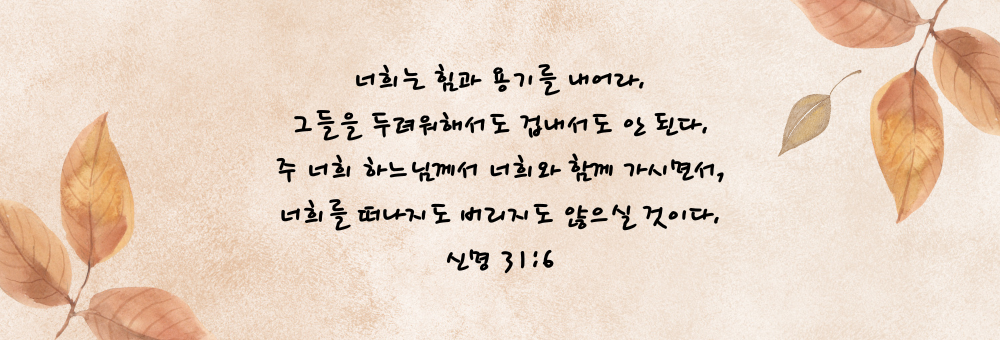 너희는 힘과 용기를 내어라.
그들을 두려워해서도 겁내서도 안 된다.
주 너희 하느님께서 너희와 함께 가시면서,
너희를 떠나지도 버리지도 않으실 것이다.
신명 31:6